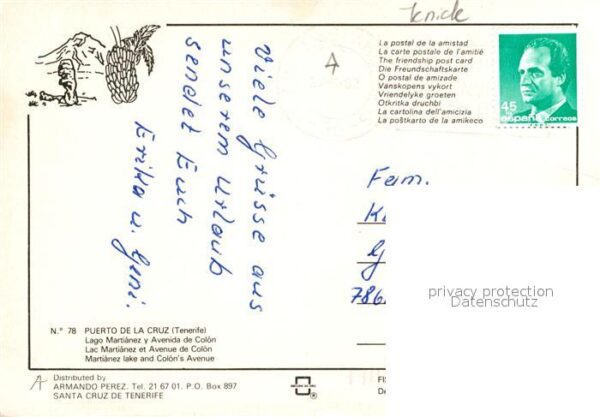 Knicke
La postal de la amistad
La carte postale de l'amitié
The friendship post card
Die Freundschaftskarte
O postal de amizade
Vanskopens vykort
Vriendelyke groeten
Otkritka druchbi
La cartolina dell'amicizia
La poŝtkarto de la amikeco
45
españa correos
Viele Grüsse aus
unserem Urlaub
sendet Euch
Erika u.
Fam.
K
786
privacy protection
Datenschutz
N.º 78 PUERTO DE LA CRUZ (Tenerife)
Lago Martiánez y Avenida de Colón
Lac Martiánez et Avenue de Colón
Martiánez lake and Colón's Avenue
Distributed by
ARMANDO PEREZ. Tel. 21 67 01. P.O. Box 897
SANTA CRUZ DE TENERIFE
®